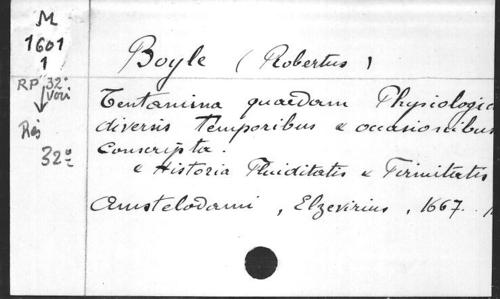 M
1601
1
RP 32º
Vovi
Rés
32º
Boyle ( Robertus )
Tentamina quaedam Physiologic
diversis temporibus & occasionibus
conscripta.
& Historia Fluiditatis & Firmitatis
Amstelodami, Elzevirius, 1667.